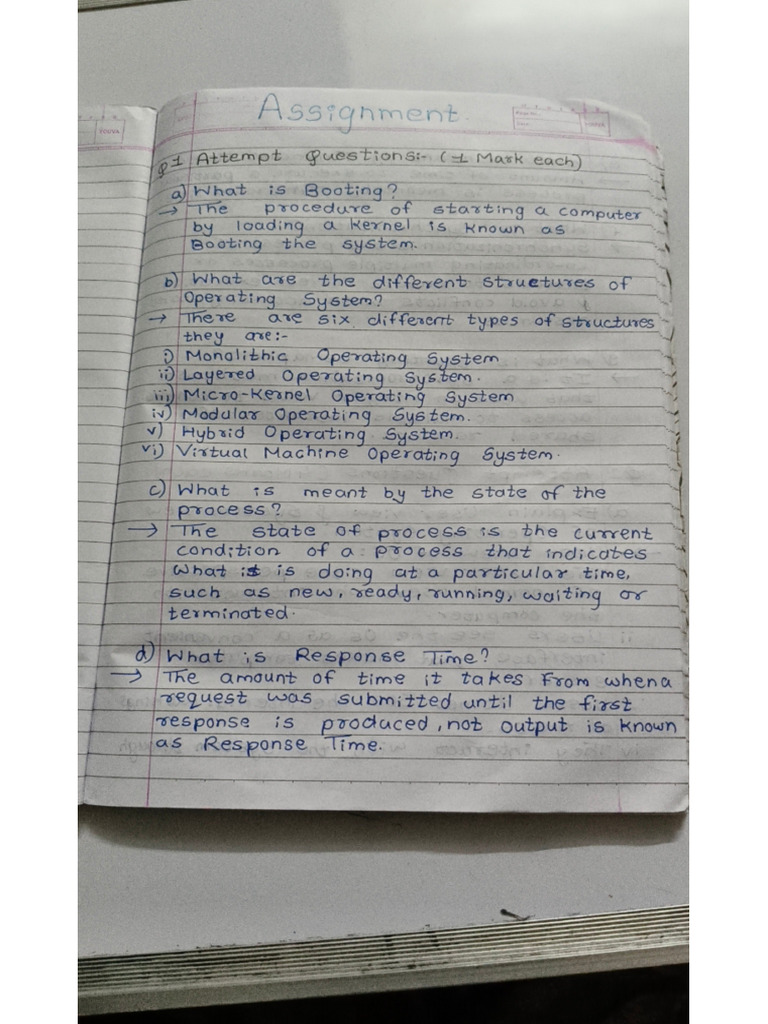 Assignment
Q1 Attempt Questions:- (1 Mark each)
a) What is Booting?
→ The procedure of starting a computer
by loading a kernel is known as
Booting the system.
b) What are the different structures of
Operating System?
→ There are six different types of structures
they are:-
i) Monolithic Operating System
ii) Layered Operating System.
iii) Micro-Kernel Operating System
iv) Modular Operating System.
v) Hybrid Operating System.
vi) Virtual Machine Operating System.
c) What is meant by the state of the
process?
→ The state of process is the current
condition of a process that indicates
what is is doing at a particular time,
such as new, ready, running, waiting or
terminated.
d) What is Response Time?
→ The amount of time it takes from when a
request was submitted until the first
response is produced, not output is known
as Response Time.